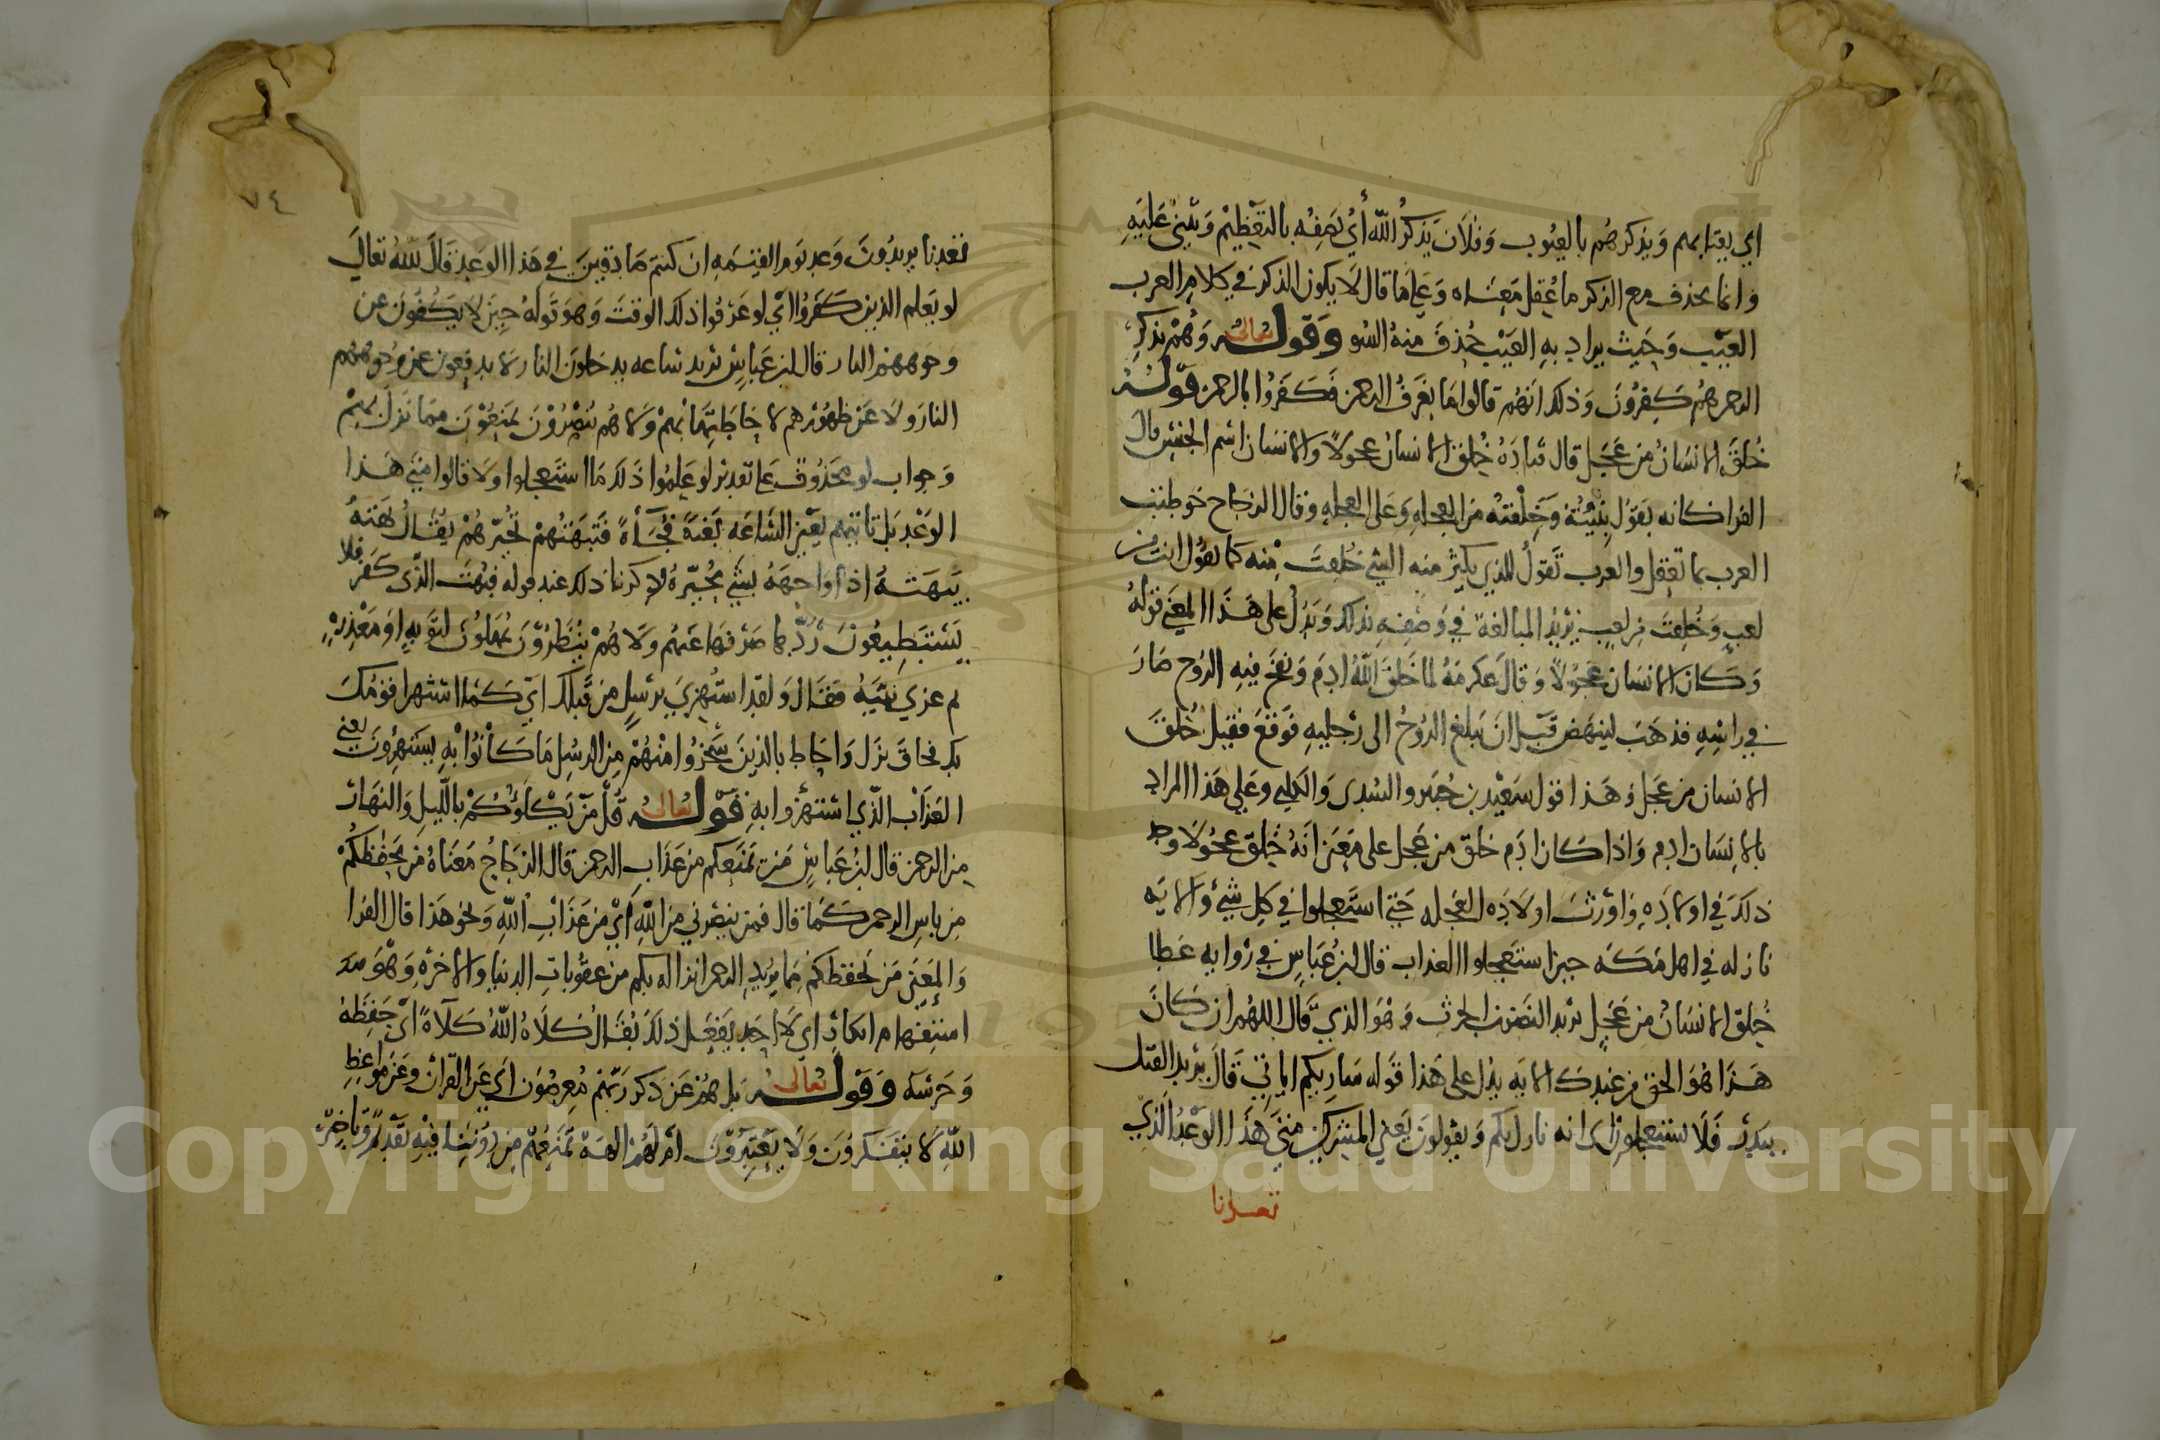 اي يغتابهم ويذكرهم بالعيوب وفلان يذكر الله أي يصفه بالتعظيم ويثني عليه
وانما يحذف مع الذكر ما عقل معناه وعلى ما قال لا يكون الذكر في كلام العرب
العيب وحيث يراد به العيب حذف منه السو وقوله تعالى وهم بذكر
الرحمن هم كفرون وذلك انهم قالوا ما نعرف الرحمن فكفروا بالرحمن قوله
خلق الانسان من عجل قال قتاده خلق الانسان عجولا والانسان اسم الجنس قال
الفرا كانه يقول بنيته وخلقته من العجله وعلى العجله وقال الزجاج خوطبت
العرب بما تعقل والعرب تقول للذي يكثر منه الشي خلقت منه كما يقول انت من
لعب وخلقت من لعب يريد المبالغة في وصفه بذلك ويدل على هذا المعنى قوله
وكان الانسان عجولا وقال عكرمه لما خلق الله ادم ونفخ فيه الروح صار
في راسه فذهب لينهض قبل ان تبلغ الروح الى رجليه فوقع فقيل خلق
الانسان من عجل وهذا قول سعيد بن جبير والسدى والكلبي وعلي هذا المراد
بالانسان ادم واذا كان ادم خلق من عجل على معنى انه خلق عجولا وجد
ذلك في اولاده واورث اولاده العجله حتى استعجلوا في كل شيء والايه
نازله في اهل مكه حين استعجلوا العذاب قال ابن عباس في روايه عطا
خلق الانسان من عجل يريد النضر بن الحرث وهو الذي قال اللهم ان كان
هذا هو الحق من عندك الايه يدل على هذا قوله ساريكم اياتي قال يريد القتل
ببدر فلا تستعجلون اى انه نازل بكم ويقولون يعني المشركين متى هذا الوعد الذي
تعدنا
٧٤
تعدنا يريدون وعد يوم القيمه ان كنتم صادقين في هذا الوعد قال الله تعالى
لو يعلم الذين كفروا اي لو عرفوا ذلك الوقت وهو قوله حين لا يكفون عن
وجوههم النار قال ابن عباس يريد ساعه يدخلون النار لا يدفعون عن وجوههم
النار ولا عن ظهورهم لاحاطتها بهم ولا هم ينصرون يمنعون مما نزل بهم
وجواب لو محذوف على تقدير لو علموا ذلك ما استعجلوا ولا قالوا متى هذا
الوعد بل تاتيهم يعني الساعه بغتة فجأة فتبهتهم تحيرهم يقال بهته
يبهته اذا واجهه بشي يحيره ذكرنا ذلك عند قوله فبهت الذى كفر فلا
يستطيعون ردها صرفها عنهم ولا هم ينظرون يمهلون لتوبه او معذره
ثم عزي نبيه فقال ولقد استهزي برسل من قبلك اي كما استهزا قومك
بك فحاق نزل واحاط بالذين سخروا منهم من الرسل ما كانوا به يستهزون يعني
العذاب الذي استهزوا به قوله تعالى قل من يكلؤكم بالليل والنهار
من الرحمن قال ابن عباس من يمنعكم من عذاب الرحمن قال الزجاج معناه من يحفظكم
من باس الرحمن كما قال فمن ينصرني من الله اي من عذاب الله ونحو هذا قال الفرا
والمعنى من يحفظكم مما يريد الرحمن انزاله بكم من عقوبات الدنيا والاخره وهو
استفهام انكار اي لا احد يفعل ذلك يقال كلاه الله كلاة اي حفظه
وحرسه وقوله تعالى بل هم عن ذكر ربهم معرضون اي عن القران وعن مواعظ
الله لا يتفكرون ولا يعتبرون ام لهم الهة تمنعهم من دوننا فيه تقديم وتاخير
Copyright © King Saud University